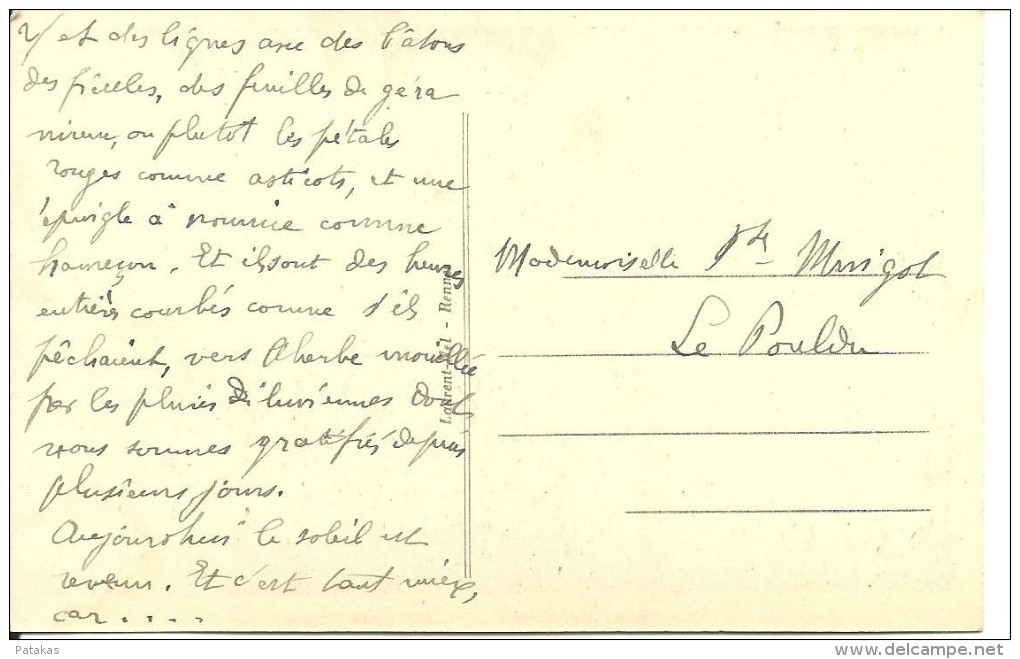 2/ et des lignes avec des bâtons
des ficelles, des feuilles de géra
nium, ou plutôt les pétales
rouges comme asticots, et une
épingle à nourrice comme
hameçon. Et ils sont des heures
entières courbés comme s'ils
pêchaient, vers l'herbe mouillée
par les pluies diluviennes dont
nous sommes gratifiés depuis
plusieurs jours.
Aujourd'hui le soleil est
revenu. Et c'est tant mieux,
car . . . .
Laurent-Nel - Rennes
Mademoiselle
Le Pouldu
Patakas
delcampe.net